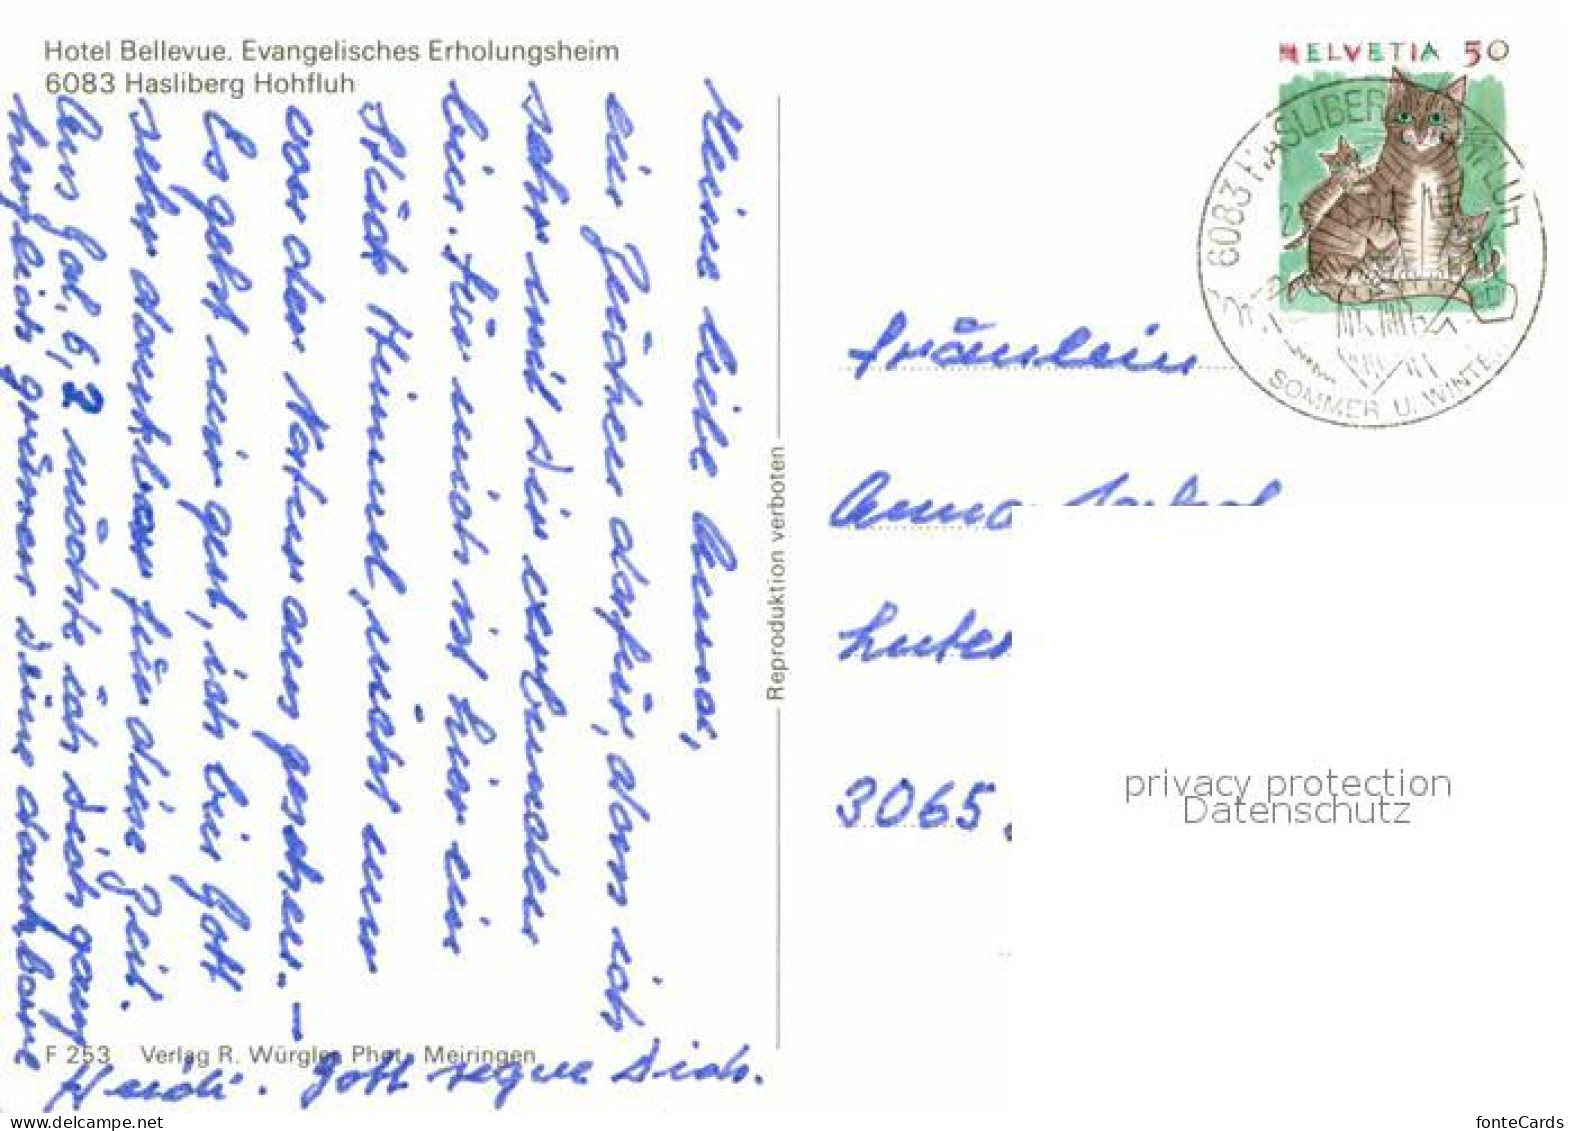 Hotel Bellevue. Evangelisches Erholungsheim
6083 Hasliberg Hohfluh
Meine liebe Anna,
ein Zeichen dafür, dass ich
sehr mit Dir verbunden
bin. Für mich ist hier ein
Stück Himmel, nicht nur
von den Noten aus gesehen. –
Es geht mir gut, ich bin Gott
sehr dankbar für diese Zeit.
Aus Gal. 6, 2 möchte ich Dich ganz
herzlich grüssen Deine dankbare
Heidi. Gott segne Dich.
F 253 Verlag R. Würgler Phot. Meiringen
Reproduktion verboten
HELVETIA 50
6083 HASLIBERG HOHFLUH
SOMMER U. WINTER
Fräulein
Anna
3065
privacy protection
Datenschutz
www.delcampe.net
fonteCards